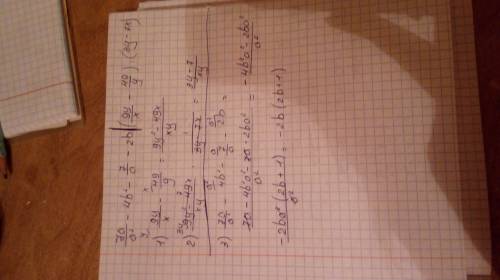 70/a² - 4b² - 7/a - 2b (9y/x - 49/y) (3y - 7x)
1) 9y/x - 49/y = 9y² - 49x/xy
2) 9y² - 49x/xy · 1/3y - 7x = 3y - 7/xy
3) 70/a² - 4b² - 7/a - 2b =
70 - 4b²a² - 70 - 2ba²/a² = -4b²a² - 2ba²/a²
-2ba² (2b + 1)/a² = -2b (2b + 1)